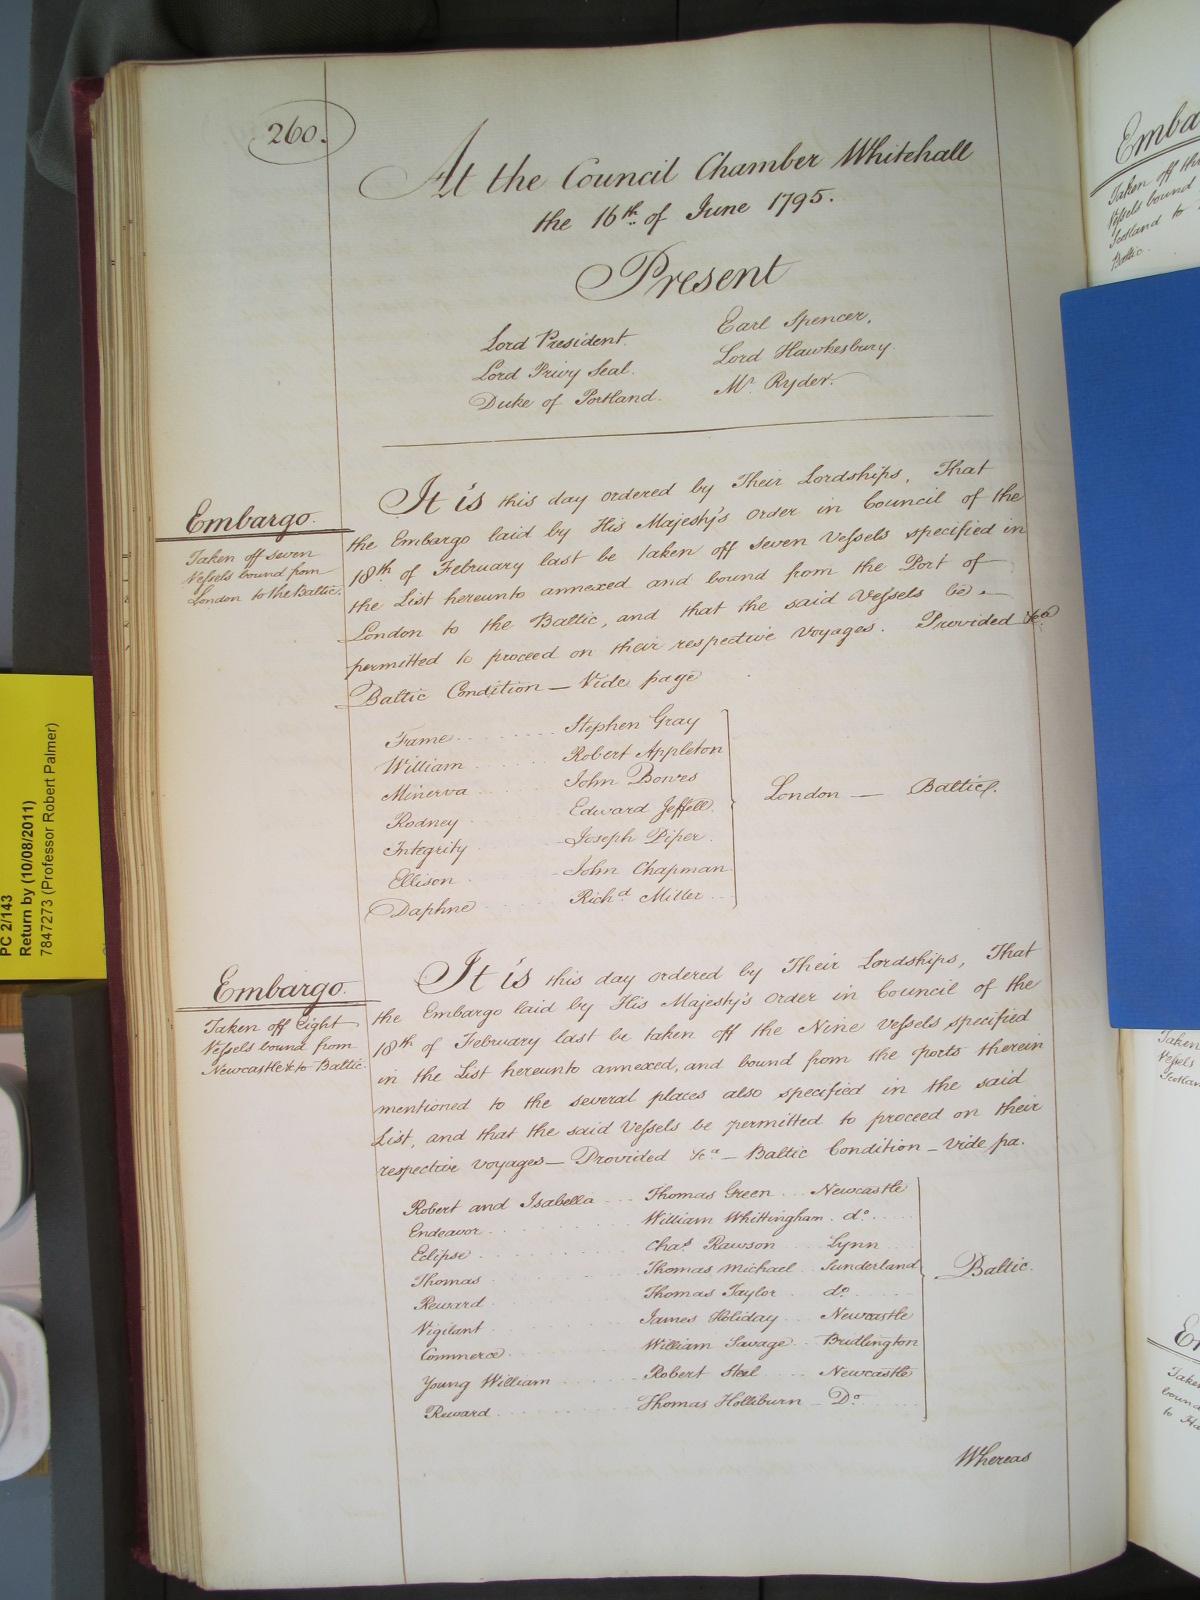 260.
At the Council Chamber Whitehall
the 16th of June 1795.
Present
Lord President. Earl Spencer.
Lord Privy Seal. Lord Hawkesbury.
Duke of Portland. Mr Ryder.
Embargo.
Taken off seven
Vessels bound from
London to the Baltic.
It is this day ordered by Their Lordships, That
the Embargo laid by His Majesty's Order in Council of the
18th of February last be taken off seven Vessels specified in
the List hereunto annexed and bound from the Port of
London to the Baltic, and that the said Vessels be
permitted to proceed on their respective Voyages. Provided &ca
Baltic Condition — Vide page
Fame Stephen Gray
William Robert Appleton
Minerva John Bowes
Rodney Edward Jeffell
Integrity Joseph Piper
Ellison John Chapman
Daphne Richd Miller
London — Baltic.
Embargo.
Taken off Eight
Vessels bound from
Newcastle &c to Baltic.
It is this day ordered by Their Lordships, That
the Embargo laid by His Majesty's Order in Council of the
18th of February last be taken off the Nine Vessels specified
in the List hereunto annexed, and bound from the ports therein
mentioned to the several places also specified in the said
List, and that the said Vessels be permitted to proceed on their
respective Voyages — Provided &ca — Baltic Condition — Vide pa.
Robert and Isabella Thomas Green Newcastle
Endeavor William Whittingham do
Eclipse Chas Rawson Lynn
Thomas Thomas Michael Sunderland
Reward Thomas Taylor do
Vigilant James Holiday Newcastle
Commerce William Savage Bridlington
Young William Robert Steel Newcastle
Reward Thomas Holliburn Do
Baltic.
Whereas
PC 2/143
Return by (10/08/2011)
7847273 (Professor Robert Palmer)
Emba
Taken off the
Vessels bound
Scotland to
Baltic.
Taken
Vessels
Scotlan
E
Taken
bound
to